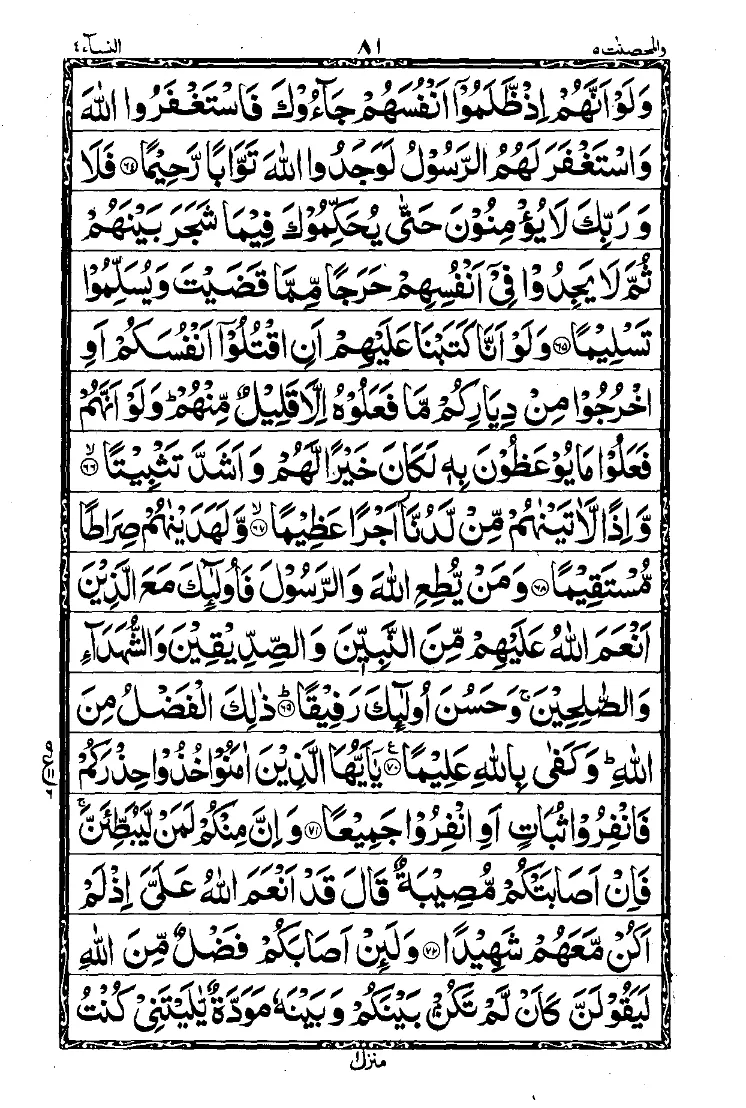 والمحصنت ٥ ٨١ النساء ٤
وَلَوْ اَنَّهُمْ اِذْ ظَّلَمُوْۤا اَنْفُسَهُمْ جَآءُوْكَ فَاسْتَغْفَرُوا اللّٰهَ
وَاسْتَغْفَرَ لَهُمُ الرَّسُوْلُ لَوَجَدُوا اللّٰهَ تَوَّابًا رَّحِيْمًا ﴿٦٤﴾ فَلَا
وَ رَبِّكَ لَا يُؤْمِنُوْنَ حَتّٰى يُحَكِّمُوْكَ فِيْمَا شَجَرَ بَيْنَهُمْ
ثُمَّ لَا يَجِدُوْا فِىْۤ اَنْفُسِهِمْ حَرَجًا مِّمَّا قَضَيْتَ وَ يُسَلِّمُوْا
تَسْلِيْمًا ﴿٦٥﴾ وَ لَوْ اَنَّا كَتَبْنَا عَلَيْهِمْ اَنِ اقْتُلُوْۤا اَنْفُسَكُمْ اَوِ
اخْرُجُوْا مِنْ دِيَارِكُمْ مَّا فَعَلُوْهُ اِلَّا قَلِيْلٌ مِّنْهُمْ ؕ وَلَوْ اَنَّهُمْ
فَعَلُوْا مَا يُوْعَظُوْنَ بِهٖ لَكَانَ خَيْرًا لَّهُمْ وَ اَشَدَّ تَثْبِيْتًا ﴿٦٦﴾ ۙ
وَّ اِذًا لَّاٰتَيْنٰهُمْ مِّنْ لَّدُنَّاۤ اَجْرًا عَظِيْمًا ﴿٦٧﴾ ۙ وَّ لَهَدَيْنٰهُمْ صِرَاطًا
مُّسْتَقِيْمًا ﴿٦٨﴾ وَ مَنْ يُّطِعِ اللّٰهَ وَ الرَّسُوْلَ فَاُولٰٓئِكَ مَعَ الَّذِيْنَ
اَنْعَمَ اللّٰهُ عَلَيْهِمْ مِّنَ النَّبِيّٖنَ وَ الصِّدِّيْقِيْنَ وَ الشُّهَدَآءِ
وَ الصّٰلِحِيْنَ ۚ وَ حَسُنَ اُولٰٓئِكَ رَفِيْقًا ﴿٦٩﴾ ؕ ذٰلِكَ الْفَضْلُ مِنَ
اللّٰهِ ؕ وَ كَفٰى بِاللّٰهِ عَلِيْمًا ﴿٧٠﴾ يٰۤاَيُّهَا الَّذِيْنَ اٰمَنُوْا خُذُوْا حِذْرَكُمْ
فَانْفِرُوْا ثُبَاتٍ اَوِ انْفِرُوْا جَمِيْعًا ﴿٧١﴾ وَ اِنَّ مِنْكُمْ لَمَنْ لَّيُبَطِّئَنَّ ۚ
فَاِنْ اَصَابَتْكُمْ مُّصِيْبَةٌ قَالَ قَدْ اَنْعَمَ اللّٰهُ عَلَىَّ اِذْ لَمْ
اَكُنْ مَّعَهُمْ شَهِيْدًا ﴿٧٢﴾ وَ لَئِنْ اَصَابَكُمْ فَضْلٌ مِّنَ اللّٰهِ
لَيَقُوْلَنَّ كَاَنْ لَّمْ تَكُنْۢ بَيْنَكُمْ وَ بَيْنَهٗ مَوَدَّةٌ يّٰلَيْتَنِىْ كُنْتُ
منزل ١